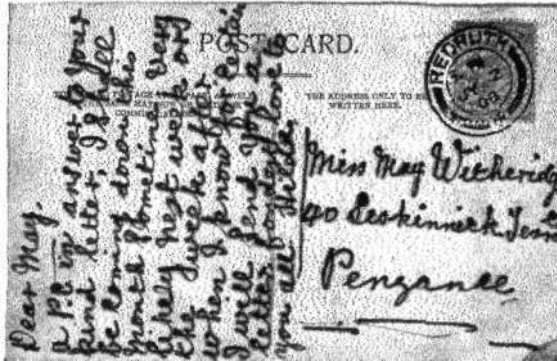 POST CARD.
THE ADDRESS ONLY TO BE
WRITTEN HERE.
REDRUTH
Dear May,
a P.C. in answer to your
kind letter, I shall
be coming down this
month sometime very
likely next week or
the week after
when I know for certain
I will send you a
letter, fondest love to
you all Hilda,
Miss May Witheridge
40 Leskinnick Terr
Penzance